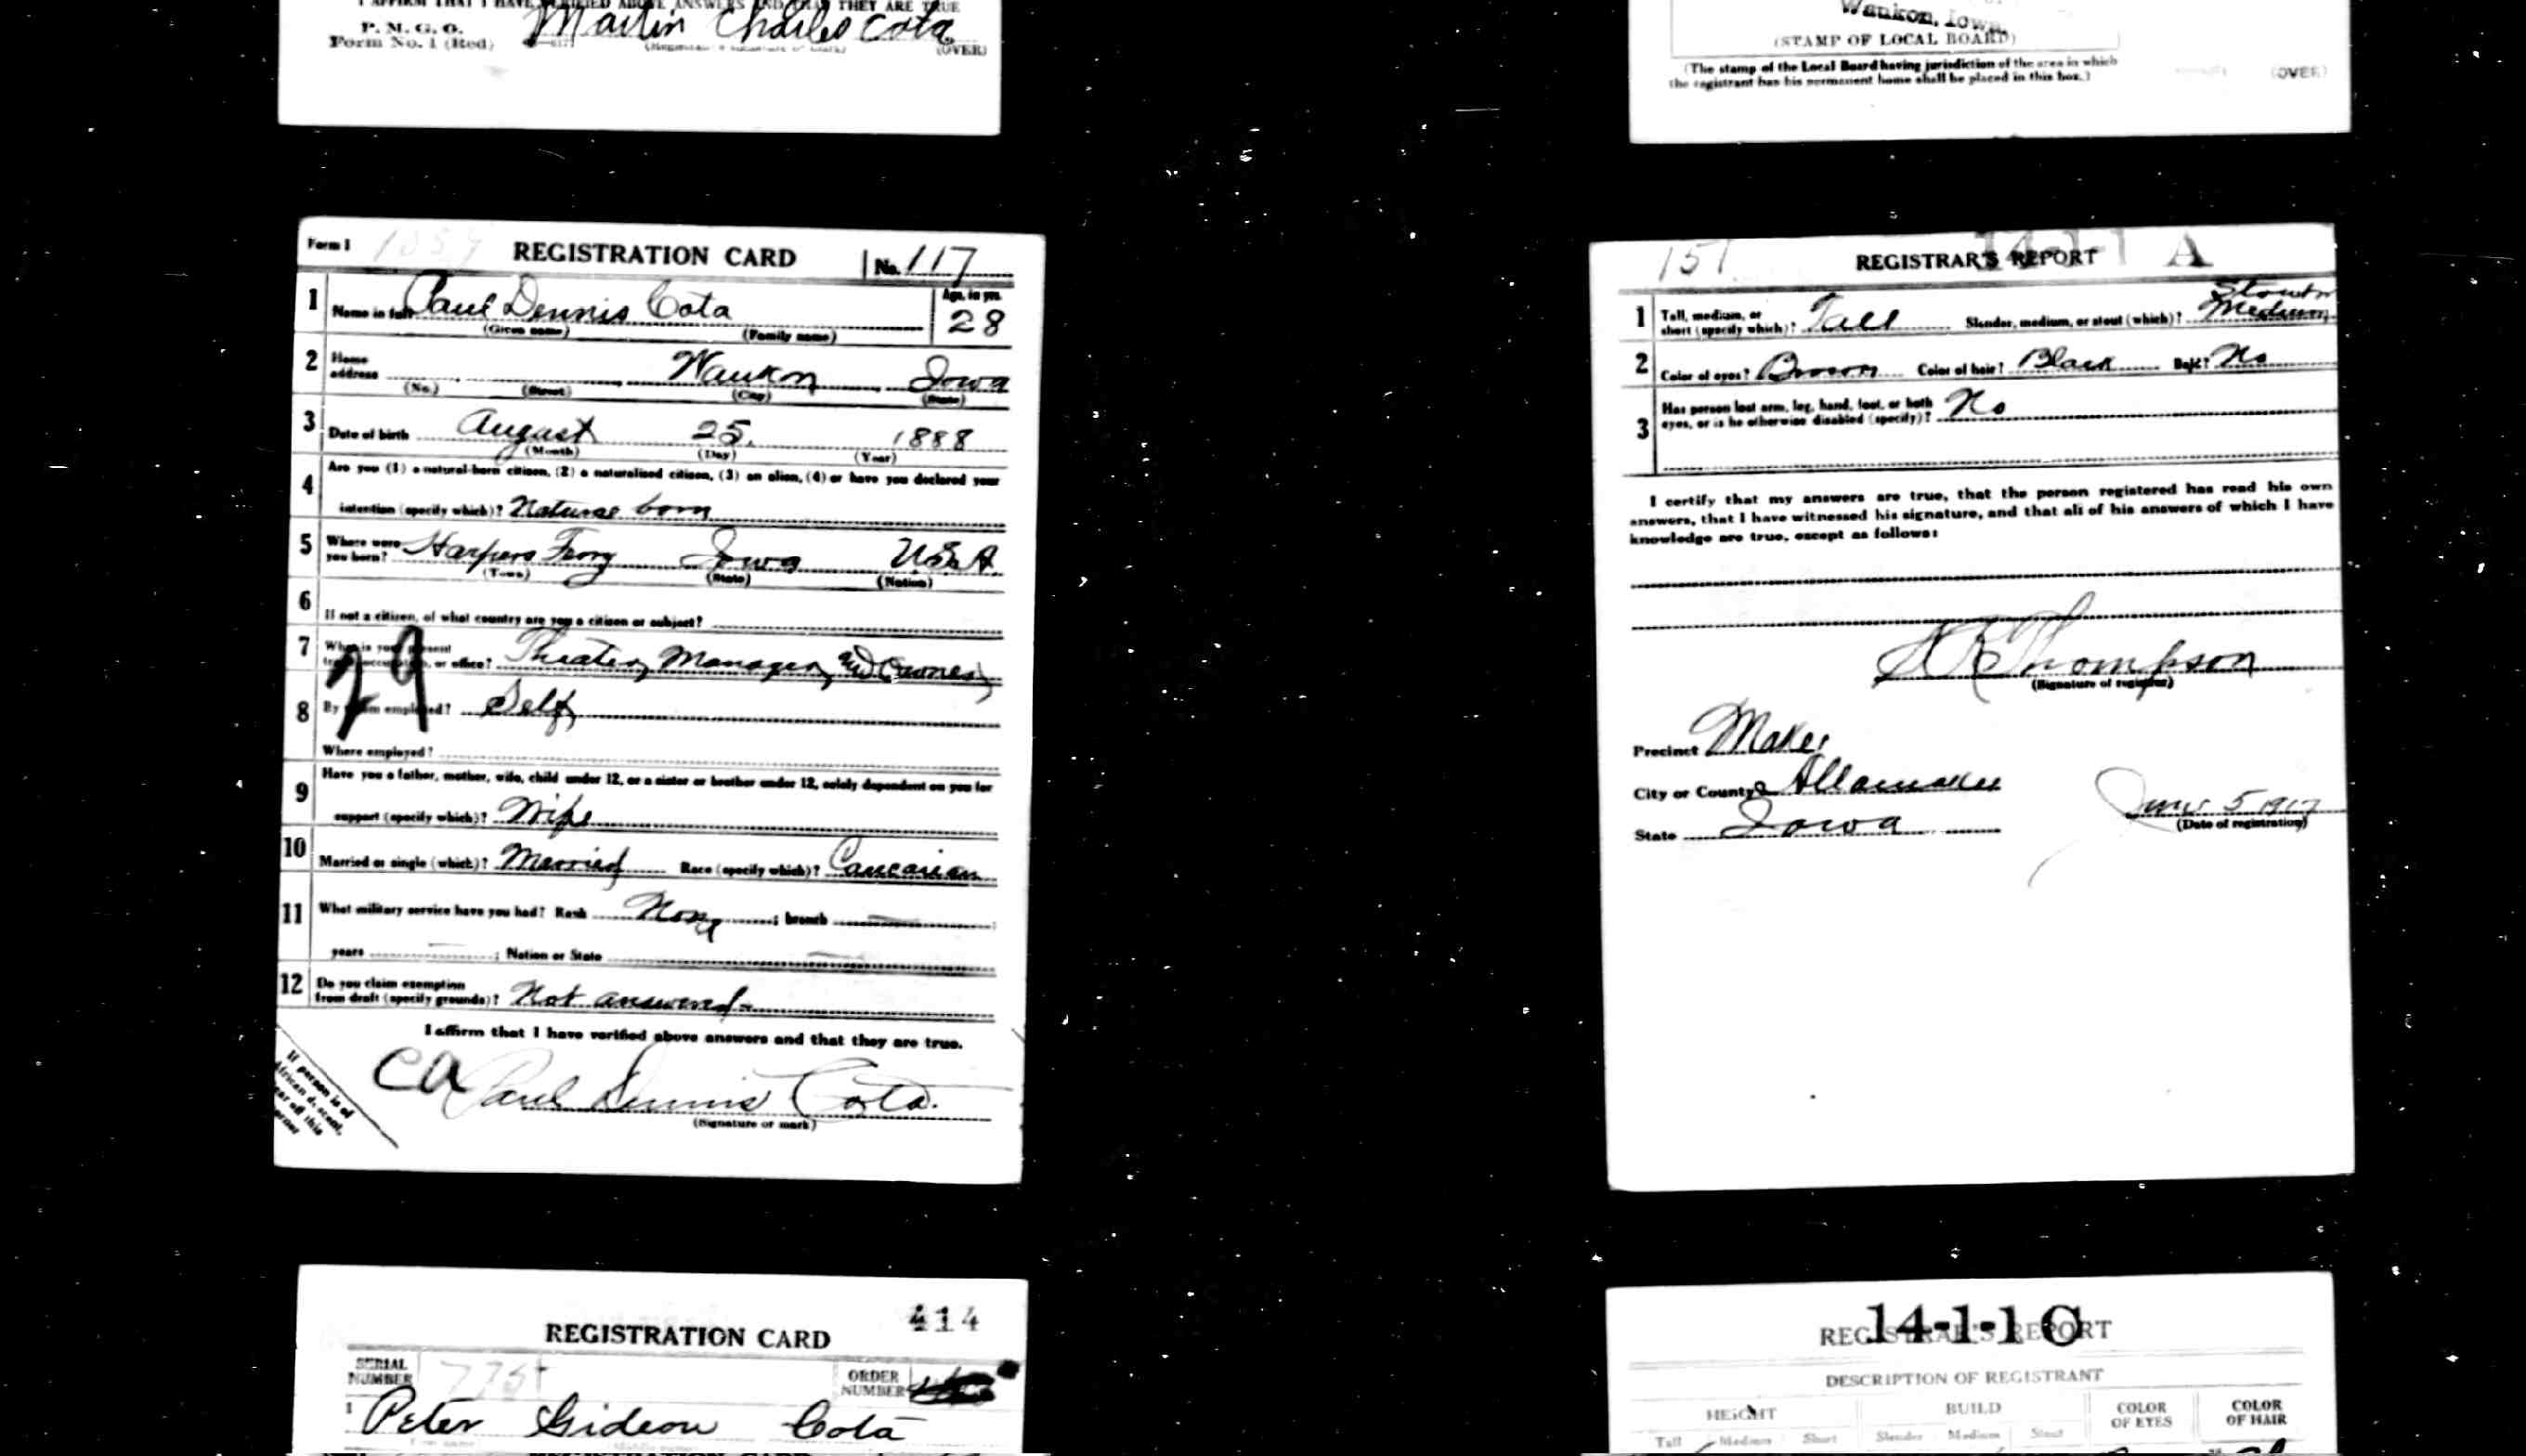 I AFFIRM THAT I HAVE VERIFIED ABOVE ANSWERS AND THAT THEY ARE TRUE
P. M. G. O.
Form No. 1 (Red)
Martin Charles Cota
(OVER)
Waukon, Iowa
(STAMP OF LOCAL BOARD)
(The stamp of the Local Board having jurisdiction of the area in which
the registrant has his permanent home shall be placed in this box.)
(OVER)
Form 1
REGISTRATION CARD
No. 117
1 Name in full Paul Dennis Cota
(Given name) (Family name)
Age, in yrs.
28
2 Home address Waukon Iowa
(No.) (Street) (City) (State)
3 Date of birth August 25. 1888
(Month) (Day) (Year)
4 Are you (1) a natural-born citizen, (2) a naturalized citizen, (3) an alien, (4) or have you declared your
intention (specify which)? Naturae born
5 Where were you born? Harpers Ferry Iowa USA
(Town) (State) (Nation)
6 If not a citizen, of what country are you a citizen or subject?
7 What is your present
trade, occupation, or office? Theater, Manager, and Owner
29
8 By whom employed? Self
Where employed?
9 Have you a father, mother, wife, child under 12, or a sister or brother under 12, solely dependent on you for
support (specify which)? Wife
10 Married or single (which)? Married Race (specify which)? Caucasian
11 What military service have you had? Rank None ; branch — ;
years — ; Nation or State —
12 Do you claim exemption
from draft (specify grounds)? Not answered -
I affirm that I have verified above answers and that they are true.
Ca Paul Dennis Cota.
(Signature or mark)
If person is of
African descent,
tear off this
corner
151
14-1-1 A
REGISTRAR'S REPORT
1 Tall, medium, or
short (specify which)? Tall Slender, medium, or stout (which)? Stout Medium
2 Color of eyes? Brown Color of hair? Black Bald? No
3 Has person lost arm, leg, hand, foot, or both
eyes, or is he otherwise disabled (specify)? No
I certify that my answers are true, that the person registered has read his own
answers, that I have witnessed his signature, and that all of his answers of which I have
knowledge are true, except as follows:
Thompson
(Signature of registrar)
Precinct Makee
City or County Allamakee
State Iowa
June 5 1917
(Date of registration)
REGISTRATION CARD
414
SERIAL NUMBER
ORDER NUMBER
1 Peter Gideon Cota
14-1-1 C
REGISTRAR'S REPORT
DESCRIPTION OF REGISTRANT
HEIGHT BUILD COLOR OF EYES COLOR OF HAIR
Tall Medium Short Slender Medium Stout